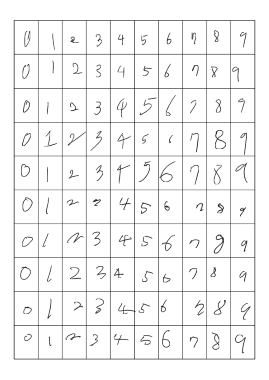 0 1 2 3 4 5 6 7 8 9
0 1 2 3 4 5 6 7 8 9
0 1 2 3 4 5 6 7 8 9
0 1 2 3 4 5 6 7 8 9
0 1 2 3 4 5 6 7 8 9
0 1 2 2 4 5 6 7 8 9
0 1 2 3 4 5 6 7 8 9
0 1 2 3 4 5 6 7 8 9
0 1 2 3 4 5 6 7 8 9
0 1 2 3 4 5 6 7 8 9